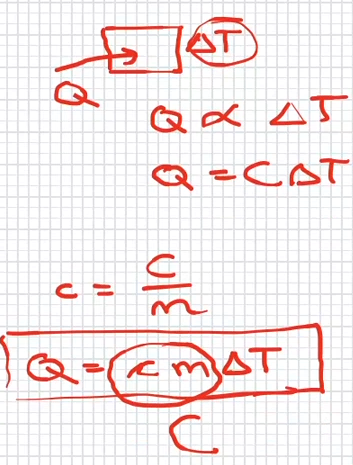 ΔT
Q
Q ∝ ΔT
Q = CΔT
c = C/m
Q = c m ΔT
C